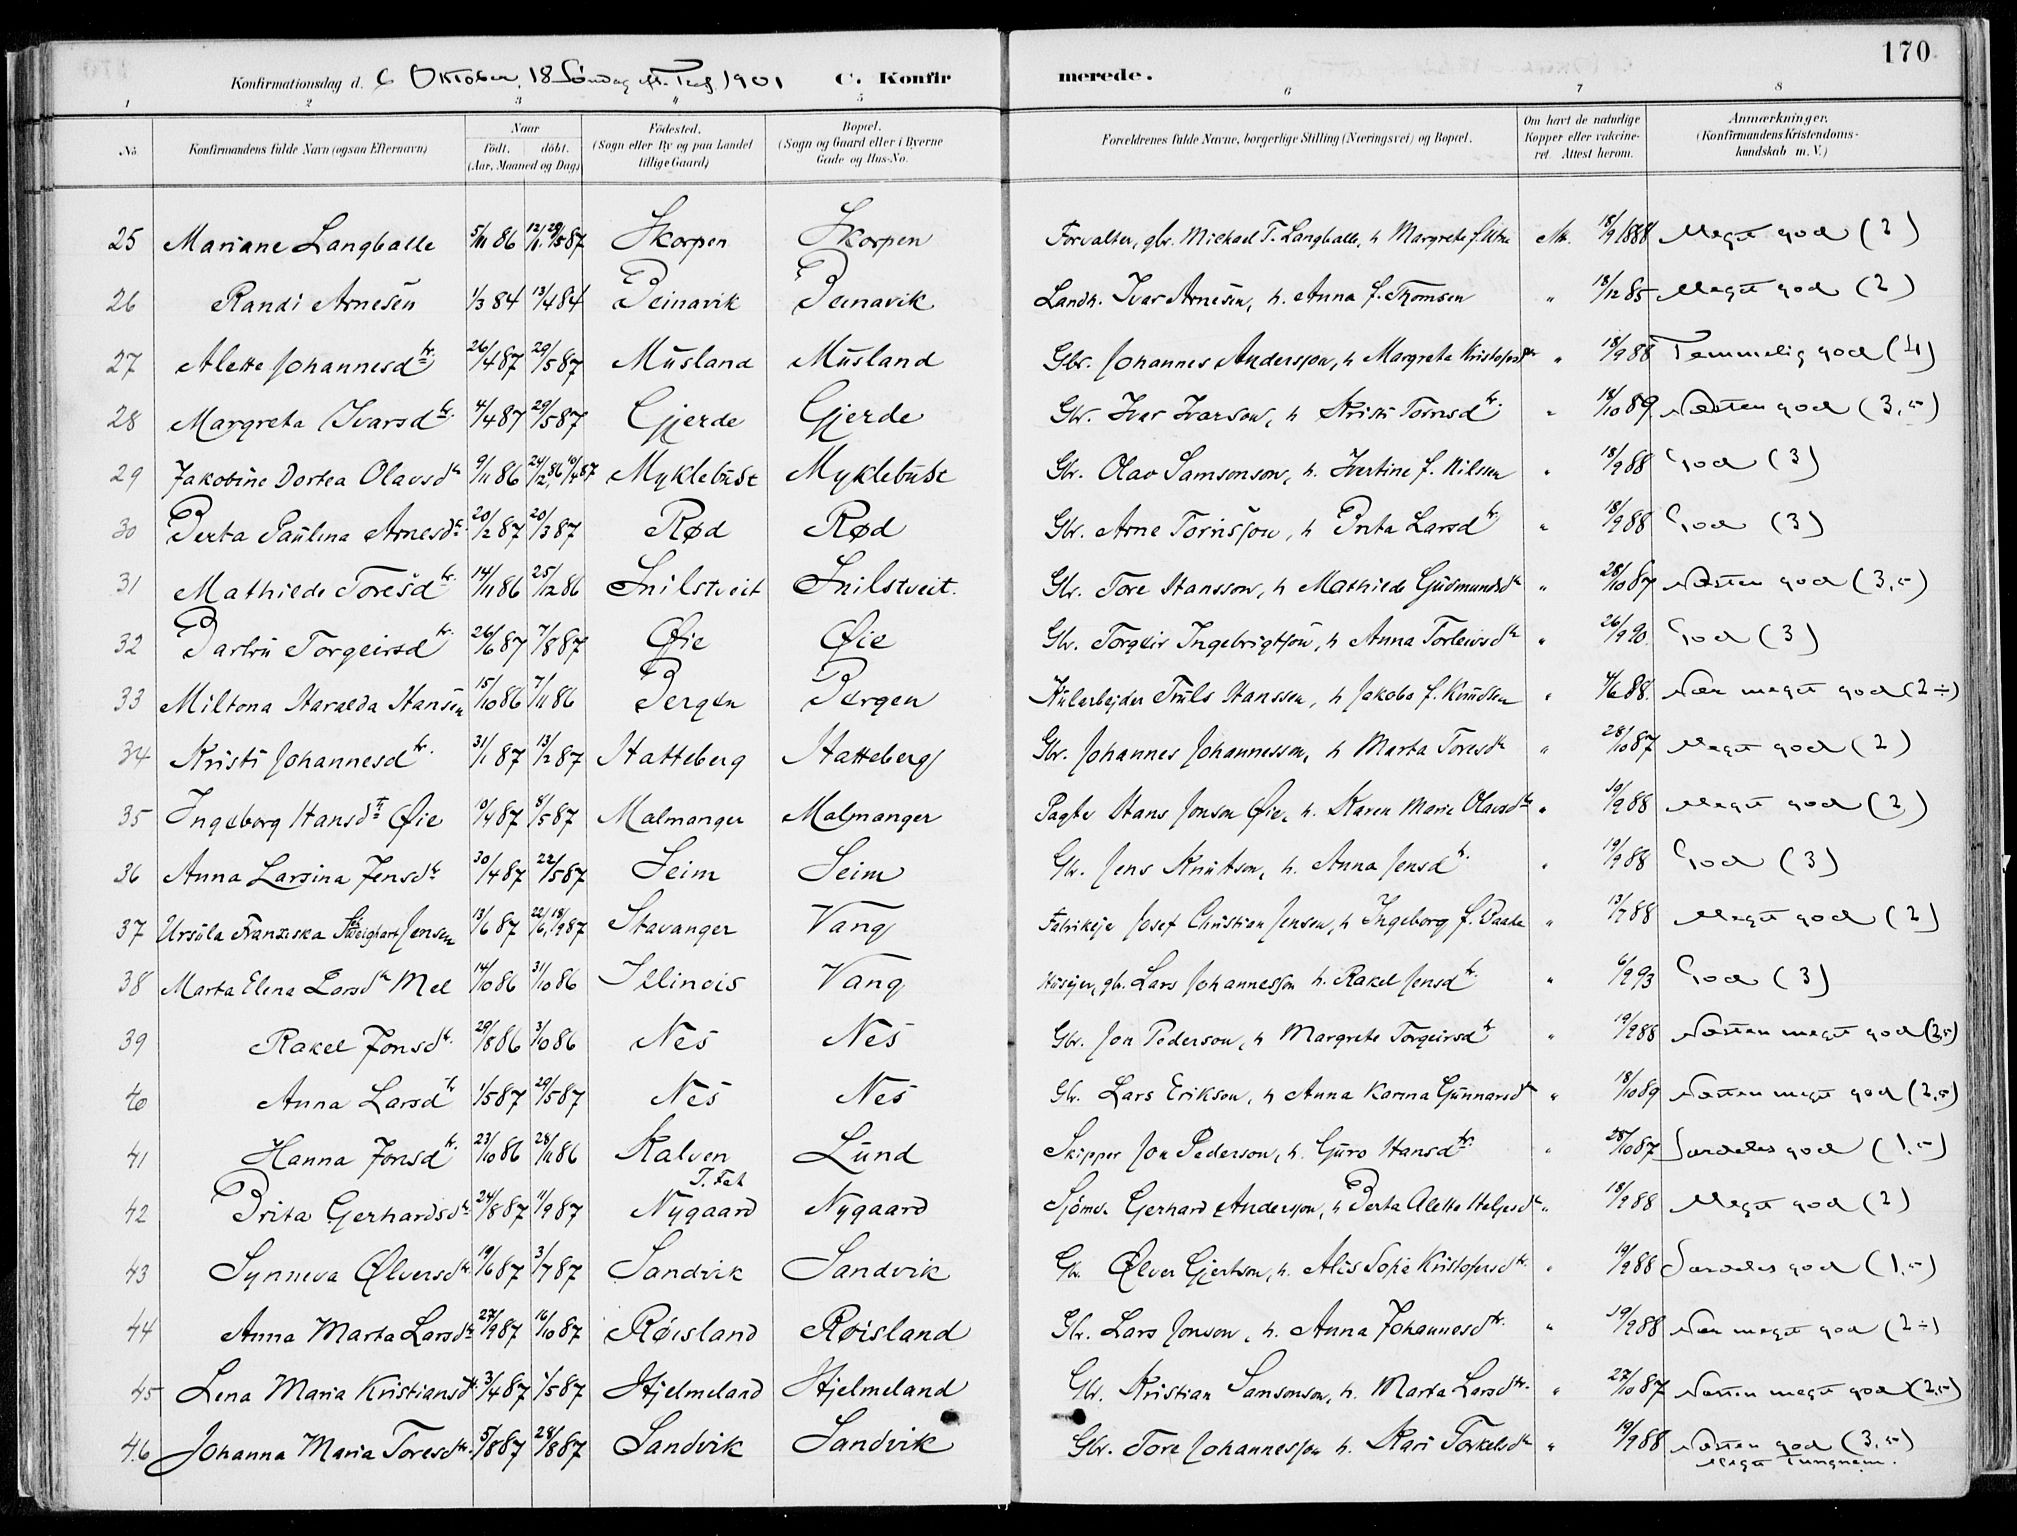 170
Konfirmationsdag d. 6 Oktober, 18 Søndag eft. 1901 C. Konfirmerede.
1 2 3 4 5 6 7 8
No. Konfirmandens fulde Navn (ogsaa Efternavn) Naar födt. döbt. (Aar, Maaned og Dag) Födested. (Sogn eller By og paa Landet tillige Gaard) Bopæl. (Sogn og Gaard eller i Byerne Gade og Hus-No. Forældrenes fulde Navne, borgerlige Stilling (Næringsvei) og Bopæl. Om havt de naturlige Kopper eller vakcineret. Attest herom. Anmærkninger. (Konfirmandens Kristendomskundskab m. V.)
25 Mariane Langballe 5/11 86 12/1, 29/5 87 Skorpen Skorpen Forvalter, gbr. Michael T. Langballe, h Margrete f. Utne 18/9 1888 Meget god (2)
26 Randi Arnesen 1/3 84 13/4 84 Beinavik Beinavik Landh. Ivar Arnesen, h. Anna f. Thomsen " 18/12 85 Meget god (2)
27 Alette Johannesdtr. 26/4 87 29/5 87 Musland Musland Gbr. Johannes Andersson, h Margreta Kristofersdtr " 18/9 88 Temmelig god (4)
28 Margreta Ivarsdtr. 4/4 87 29/5 87 Gjerde Gjerde Gbr. Ivar Ivarson, h Kristi Tornsdtr. " 18/10 89 Næsten god (3,5)
29 Jakobine Dortea Olavsdtr 9/11 86 24/12 86, 10/4 87 Myklebust Myklebust Gbr. Olav Samsonson, h. Ivertine f. Nilsen " 18/9 88 God (3)
30 Berta Paulina Arnesdtr. 20/2 87 20/3 87 Rød Rød Gbr. Arne Tornsson, h Brita Larsdtr. " 18/9 88 God (3)
31 Mathilde Toresdtr. 14/11 86 25/12 86 Snilstveit Snilstveit. Gbr. Tore Hansson, h Mathilde Gudmundsdtr " 28/10 87 Næsten god (3,5)
32 Bartru Torgeirsdtr. 26/6 87 7/8 87 Øie Øie Gbr. Torgeir Ingebrigtson, h Anna Torleivsdtr " 26/9 90. God (3)
33 Miltona Haralda Hansen 15/10 86 7/11 86 Bergen Bergen Truls Hanssen, h Jakoba f. Knudsen " 4/6 88. Nær meget god (2÷)
34 Kristi Johannesdtr. 31/1 87 13/2 87 Hatteberg Hatteberg Gbr. Johannes Johannesson, h Marta Toresdtr " 28/10 87 Meget god (2)
35 Ingeborg Hansdtr Øie 10/4 87 8/5 87 Malmanger Malmanger Pagter Hans Jonson Øie, h. Karen Marie Olavsdtr " 19/9 88 Meget god (2)
36 Anna Larsina Jensdtr 30/4 87 22/5 87 Seim Seim Gbr. Jens Knutson, h. Anna Jensdtr. " 19/9 88 God (3)
37 Ursula Franziska Jensen 13/6 87 22/6, 18/9 87 Stavanger Vang Fabrikeje Josef Christian Jensen, h Ingeborg f. " 13/7 88 Meget god (2)
38 Marta Elena Larsdtr Mel 14/10 86 31/10 86 Illinois Vang Husejer, gb. Lars Johannesson h. Rakel Jensdtr. " 6/9 93 God (3)
39 Rakel Jonsdtr. 29/8 86 3/10 86 Nes Nes Gbr. Jon Pederson, h Margrete Torgeirsdtr " 19/9 88 Næsten meget god (2,5)
40 Anna Larsdtr 1/5 87 29/5 87 Nes Nes Gbr. Lars Erikson, h Anna Karina Gunnarsdtr " 18/10 89 Næsten meget god (2,5)
41 Hanna Jonsdtr. 23/10 86 28/11 86 Kalven Lund Skipper Jon Pederson, h. Guro Hansdtr. " 28/10 87 Særdeles god (1,5)
42 Brita Gerhardsdtr 24/8 87 11/9 87 Nygaard Nygaard Sjømd. Gerhard Andersson, h Berta Alette Helgesdtr " 18/9 88 Meget god (2)
43 Synneva Ølversdtr 19/6 87 3/7 87 Sandvik Sandvik Gbr. Ølver Gjertson, h. Alis Sofie Kristofersdtr. " 19/9 88 Særdeles god (1,5)
44 Anna Marta Larsdtr 27/9 87 16/10 87 Røisland Røisland Gbr. Lars Jonson, h. Anna Johannesdtr. " 19/9 88 Nær meget god (2÷)
45 Lena Maria Kristiansdtr 3/4 87 1/5 87 Hjelmeland Hjelmeland Gbr. Kristian Samsonson, h. Marta Larsdtr. " 27/10 87 Næsten meget god (2,5)
46 Johanna Maria Toresdtr. 5/8 87 28/8 87 Sandvik Sandvik Gbr. Tore Johannesson h. Kari Torkelsdtr " 19/9 88 Næsten god (3,5)
Meget tungnem.